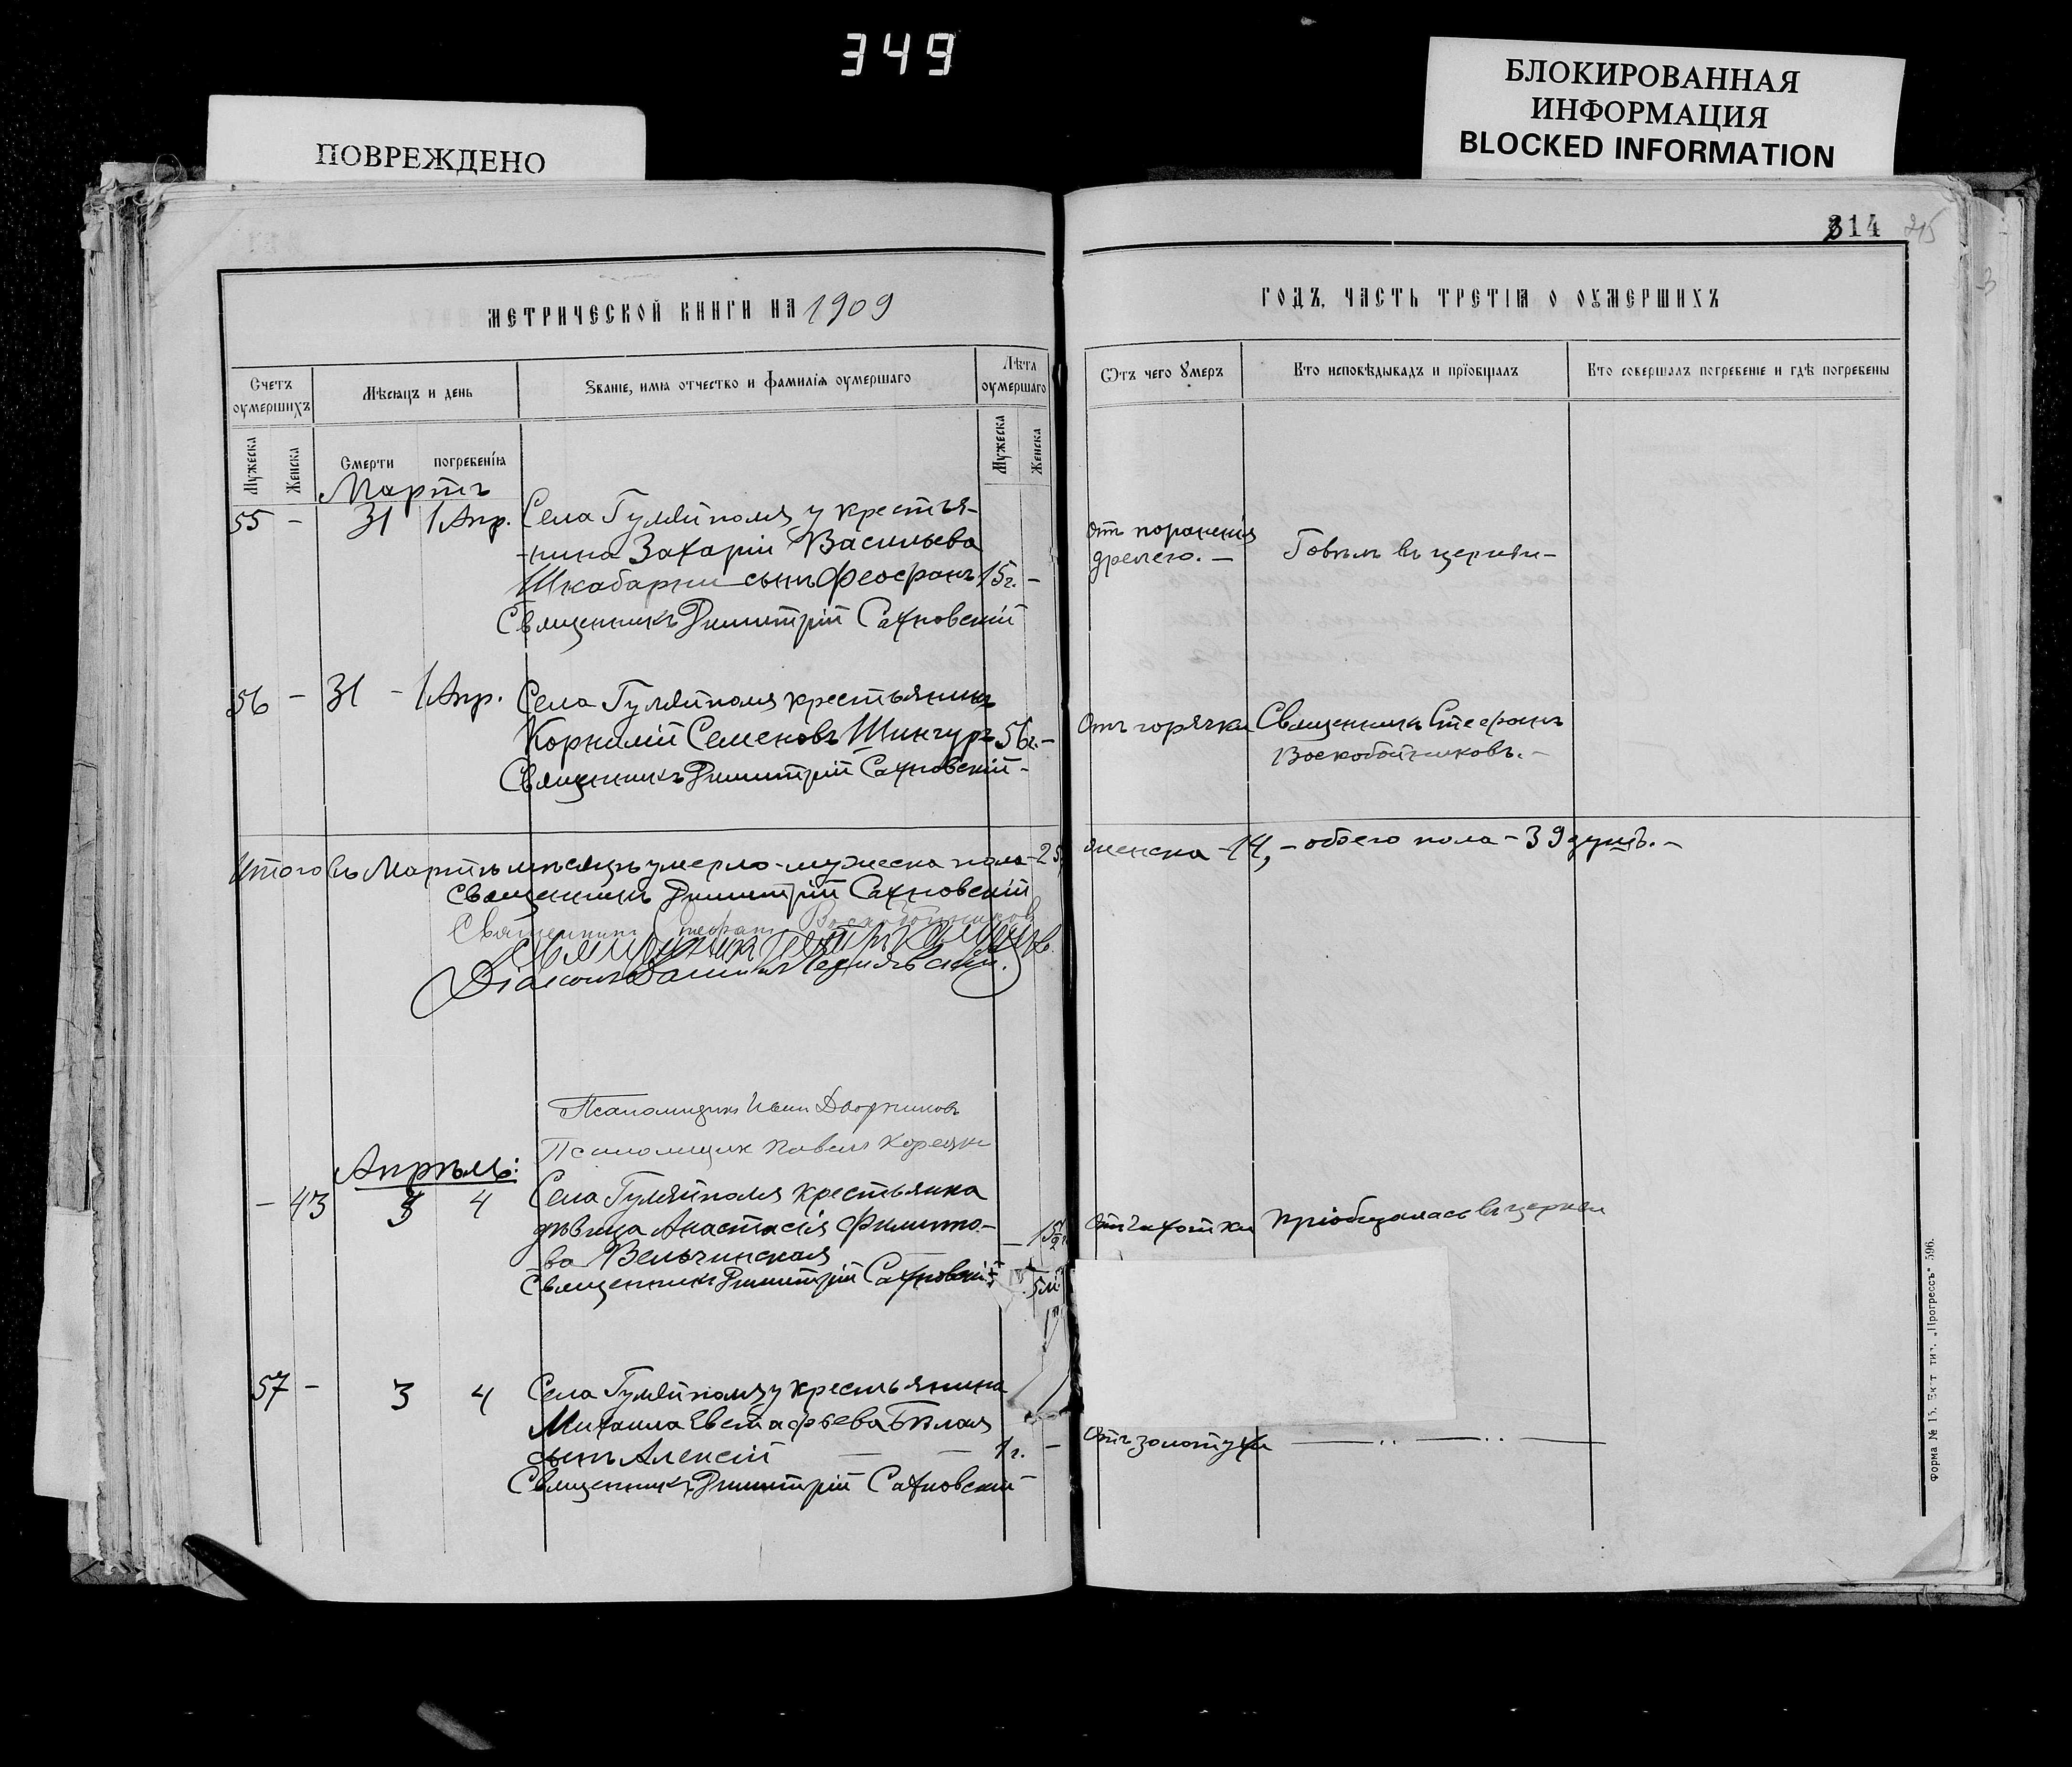 349
ПОВРЕЖДЕНО
БЛОКИРОВАННАЯ
ИНФОРМАЦИЯ
BLOCKED INFORMATION
314 215
МЕТРИЧЕСКОЙ КНИГИ НА 1909
Счетъ оумершихъ
Мѣсяцъ и день
Званіе, имѧ отчество и фамиліѧ оумершаго
Лѣта оумершаго
Мужеска
Женска
Смерти
погребеніѧ
Мужеска
Женска
Мартъ
55 - 31 1 Апр. Села Гуляйполя у крестья-
-нина Захарія Васильева
Шкабарни сынъ Феофанъ 15 г. -
Священникъ Димитрій Сахновскій
56 - 31 - 1 Апр. Села Гуляйполя крестьянинъ
Корнилій Семеновъ Шингуръ 56 г. -
Священникъ Димитрій Сахновскій -
Итого въ Мартѣ мѣсяцѣ умерло - мужеска пола - 25,
Священникъ Димитрій Сахновскій
Священникъ Стефанъ Воскобойниковъ
Священникъ Петръ
Діаконъ
Псаломщикъ Иванъ Дворниковъ
Псаломщик Павелъ
Апрѣль:
- 43 3 4 Села Гуляйполя крестьянка
дѣвица Анастасія Филипо-
ва Вельчинская
Священникъ Димитрій Сахновскій
57 - 3 4 Села Гуляйполя у крестьянина
Михаила Евстафьева Бѣлая
сынъ Алексій — — 1 г. -
Священникъ Димитрій Сахновскій
ГОДЪ, ЧАСТЬ ТРЕТІѦ О ОУМЕРШИХЪ
Ѿтъ чего оумеръ
Кто исповѣдывалъ и пріобщалъ
Кто совершалъ погребеніе и гдѣ погребены
Отъ пораненія
Говѣлъ въ церкви -
Отъ горячки Священникъ Стефанъ
Воскобойниковъ. -
женска - 14, - обоего пола - 39 душъ. -
Отъ чахотки Пріобщалась въ церкви
Отъ золотухи
Форма № 15. тип. „Прогрессъ“ 596.